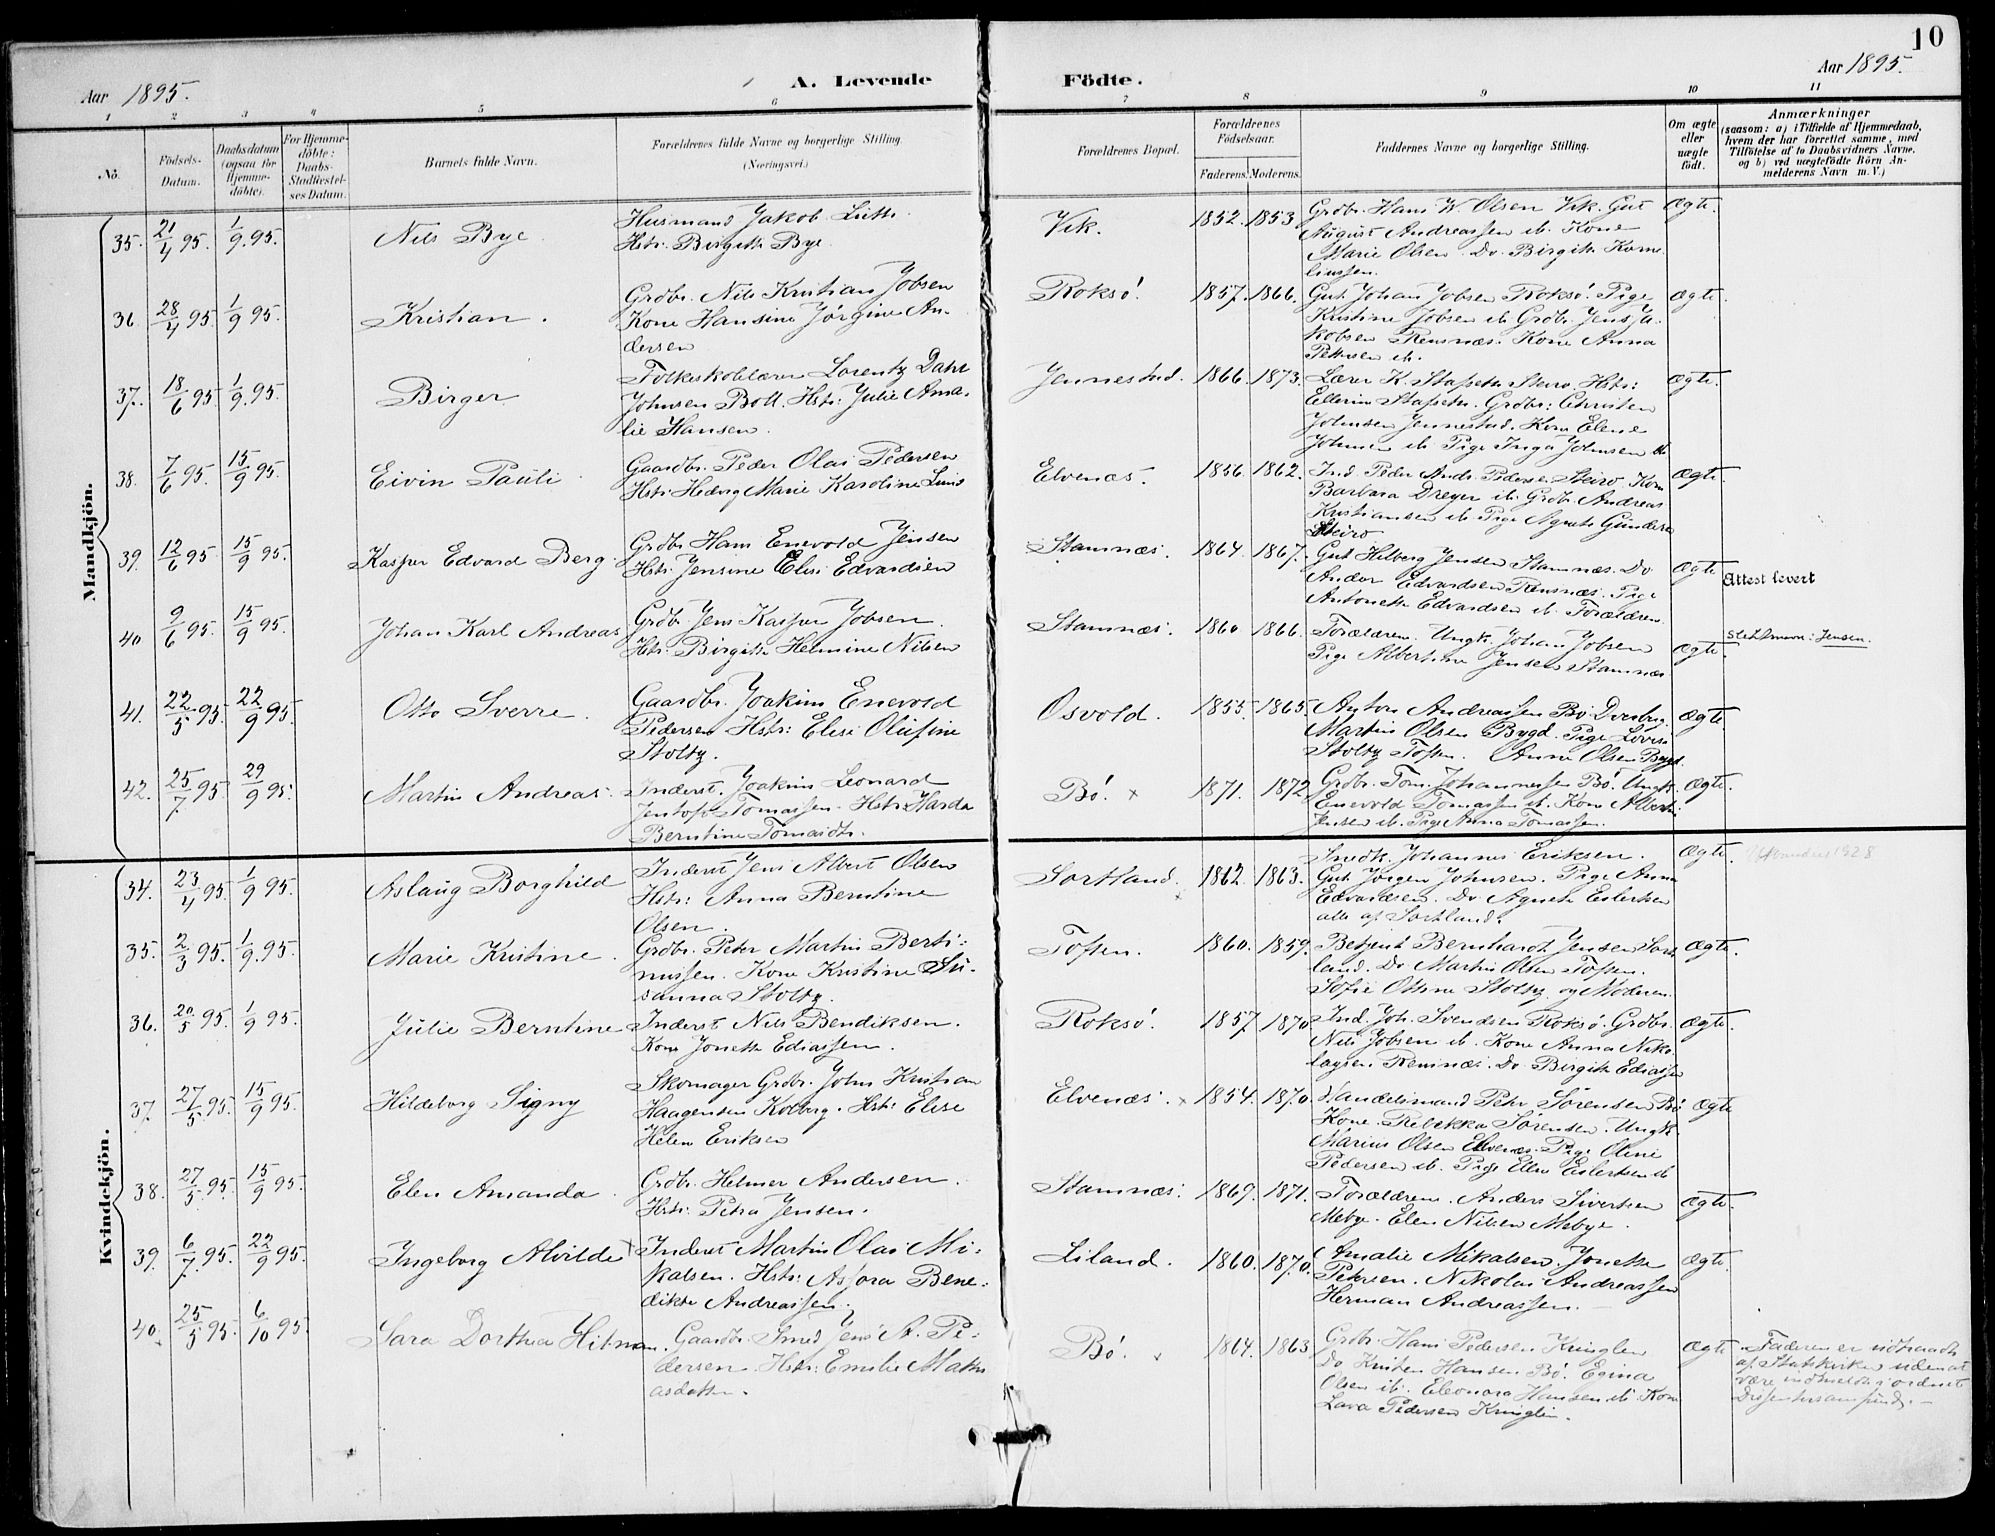 10
Aar 1895.
A. Levende
Födte.
Aar 1895.
1 2 3 4 5 6 7 8 9 10 11
No.
Födsels-
Datum.
Daabsdatum
(ogsaa for
Hjemme-
döbte).
For Hjemme-
döbte:
Daabs-
Stadfæstel-
ses Datum.
Barnets fulde Navn.
Forældrenes fulde Navne og borgerlige Stilling.
(Næringsvei.)
Forældrenes Bopæl.
Forældrenes
Födselsaar.
Faderens. Moderens.
Faddernes Navne og borgerlige Stilling.
Om ægte
eller
uægte
födt.
Anmærkninger
(saasom: a) i Tilfælde af Hjemmedaab,
hvem der har forrettet samme, med
Tilföielse af to Daabsvidners Navne,
og b) ved uægtefödte Börn An-
melderens Navn m. V.)
Mandkjön.
35. 21/4 95. 1/9. 95. Nils Bye
Husmand Jakob
Hstr. Birgitte Bye
Vik. 1852. 1853
Grdbr. Hans W. Olsen Vik. Gut
August Andreassen ib. Kone
Marie Olsen. Do. Birgitte Korne
liussen.
Ægte.
36. 28/4 95. 1/9 95. Kristian.
Grdbr. Nils Kristian Jobsen
Kone Hansine Jörgine An-
dersen
Roksö. 1857. 1866.
Gut Johan Jobsen Roksö. Pige
Kristine Jobsen ib. Grdbr. Jens Ja-
kobsen Rensnæs. Kone Anna
Petersen ib.
Ægte.
37. 18/6 95. 1/9. 95. Birger
Folkeskolelærer Lorentz Dahl
Johnsen Boll. Hstr: Julie Ama-
lie Hansen.
Jennestad. 1866. 1873.
Lærer K. Stafseth Steiro. Hstr:
Ellerine Stafseth. Grdbr: Christen
Johnsen Jennestad. Kone Elene
Johnsen ib. Pige Inga Johnsen ib
Ægte.
38. 7/6 95. 15/9 95. Eivin Pauli
Gaardbr. Peder Olai Pedersen
Hstr: Hedvig Marie Karoline
Elvenæs. 1856. 1862.
Ind. Peder Andr. Pedersen Steiro. Kone
Barbara Dreyer ib. Grdb. Andreas
Kristiansen ib. Pige Agnete Gunders
Steiro
Ægte.
39. 12/6 95. 15/9 95. Kasper Edvard Berg.
Grdbr. Hans Enevold Jensen
Hstr: Jensine Elise Edvardsen
Stamnæs. 1864. 1867.
Gut Hilberg Jensen Stamnæs. Do
Ander Edvardsen Rensnæs. Pige
Antonette Edvardsen ib. Forældren.
Ægte
Attest levert
40 9/6 95. 15/9 95. Johan Karl Andreas
Grdbr. Jens Kasper Jobsen.
Hstr: Birgitte Helmine Nilsen
Stamnæs. 1860 1866.
Forældrene. Ungk. Johan Jobsen
Pige Albertine Jensen Stamnæs
Ægte.
Slektsnavn: Jensen.
41. 22/5 95. 22/9 95. Otto Sverre.
Gaardbr. Joakim Enevold
Pedersen Hstr: Elise Olufine
Stoltz.
Osvold. 1855. 1865.
Anton Andreassen Bö.
Martin Olsen Bygd. Pige Lovise
Stoltz Toften. Anne Olsen Bygd.
Ægte
42. 25/7 95. 29/9 95. Martin Andreas.
Inderst. Joakim Leonard
Jentoft Tomassen. Hstr: Harda
Berntine
Bö. x 1871. 1872
Grdbr. Tom. Johannessen Bö. Ungk.
Enevold Tomassen ib. Kone Alberti
Jensen ib. Pige Anna Tomassen.
Ægte.
Kvindekjön.
34. 23/4 95. 1/9 95. Aslaug Borghild
Inderst Jens Albert Olsen
Hstr: Anna Berntine
Olsen.
Sortland. x 1862. 1863.
Snedk. Johannes Eriksen.
Gut Jörgen Johnsen. Pige Anna
Edvardsen. Do Agnete Eilertsen
alle af Sortland.
Ægte.
1928
35. 2/3 95. 1/9. 95. Marie Kristine.
Grdbr. Peter Martin Berti-
nussen. Kone Kristine Su-
sanna Stoltz.
Toften. 1860. 1859.
Betjent Bernhardt Jensen Sort
land. Do Martin Olsen Toften.
Sofie Stoltz og Moderen.
Ægte.
36. 20/5 95. 1/9 95. Julie Berntine
Inderst Nils Bendiksen.
Kone Jonette Ediassen.
Roksö. 1857 1870
Ind. Joh. Svendsen Roksö. Grdbr.
Nils Jobsen ib. Kone Anna Niko
laysen Rensnæs. Do. Birgitte Ediassen
Ægte.
37. 27/5 95. 15/9 95. Hildeborg Signy
Skomager Grdbr. Johs Kristian
Haagensen Kolberg. Hstr: Elise
Helene Eriksen
Elvenæs. x 1854. 1870.
Handelsmand Peter Sörensen Bö
Kone Rebekka Sörensen. Ungk.
Marius Olsen Elvenæs. Pige Oline
Pedersen ib. Pige Ellen Eilertsen ib
Ægte
38. 27/5 95. 15/9 95. Elen Amanda.
Grdbr. Helmer Andersen.
Hstr: Petra Jensen.
Stamnæs. 1869. 1871.
Forældrene. Anders Sivertsen
Mebye. Elen Nilsen Mebye.
Ægte.
39. 6/7 95. 22/9 95. Ingeborg Alvilde
Inderst Martin Olai Mi-
kalsen. Hstr: Asfora Bene-
dikte Andreassen.
Liland. 1860. 1870.
Amalie Mikalsen. Jonette
Petersen. Nikolai Andreassen
Herman Andreassen.
Ægte.
40. 25/5 95. 6/10 95. Sara Dorthea
Gaardbr. Smed Jens A. Pe-
dersen. Hstr: Emilie
Bö. x 1864. 1863
Grdbr. Hans Pedersen Kringlen
Do Kristen Hansen Bö. Egina
Olsen ib. Eleonora Hansen ib. Kone
Lava Pedersen Kringlen.
Ægte
Faderen er udtraadt
af Statskirken uden at
være indmeldt i ordnet
Dissentersamfund.